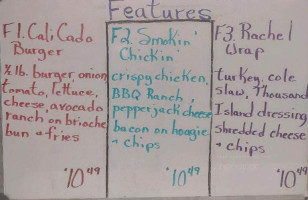 Features
F1. Cali Cado
Burger
½ lb. burger, onion,
tomato, lettuce,
cheese, avocado
ranch on brioche
bun & fries
$10.49
F2. Smokin'
Chickin
crispy chicken,
BBQ Ranch,
pepperjack cheese
bacon on hoagie
& chips
$10.49
F3. Rachel
Wrap
turkey, cole
slaw, Thousand
Island dressing
shredded cheese
& chips
$10.49